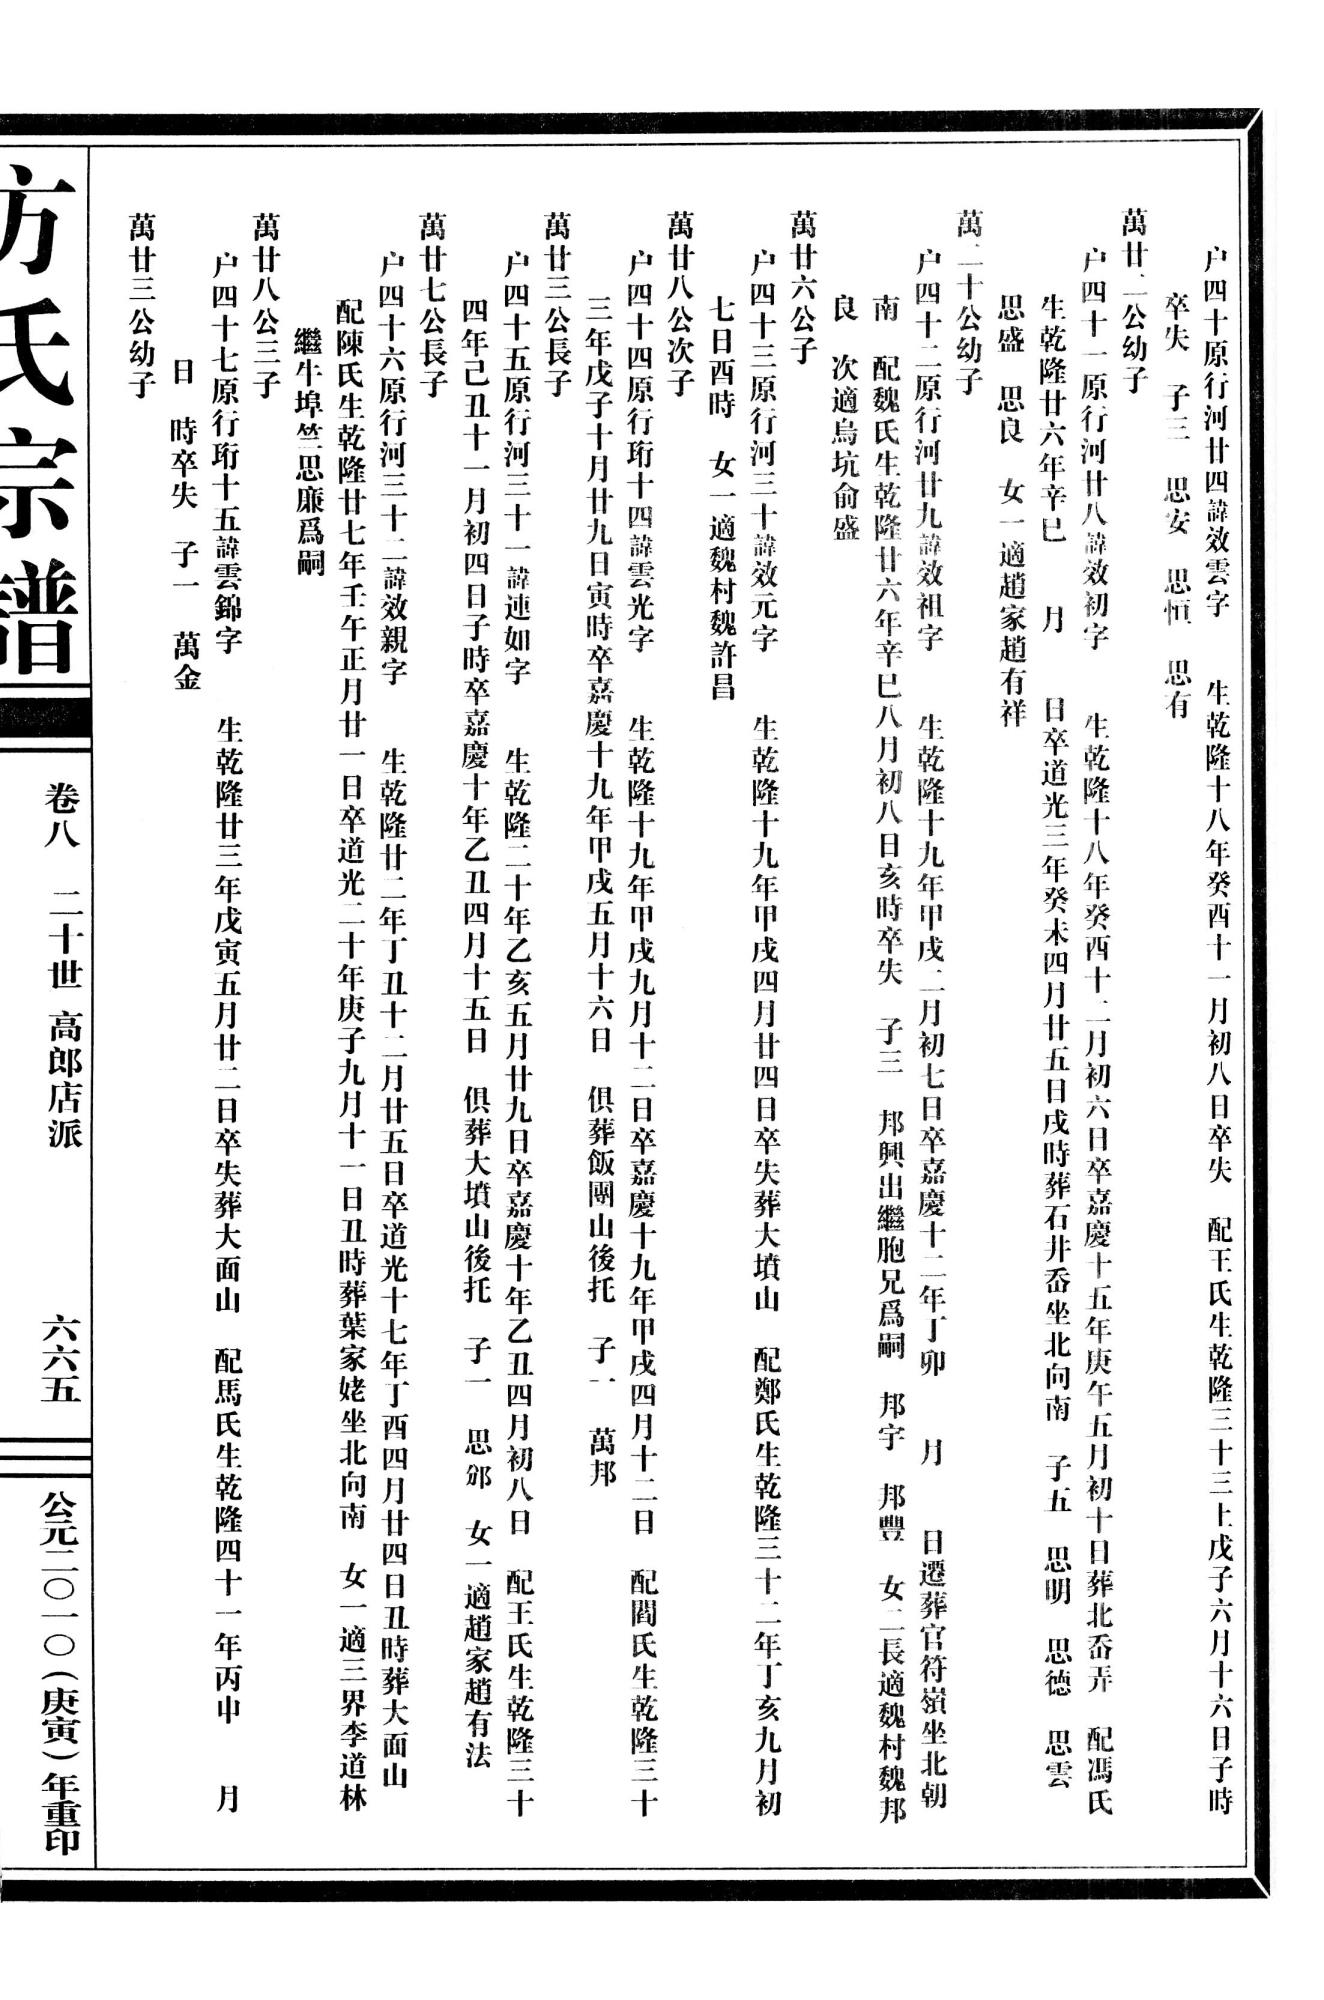 户四十原行河廿四諱效雲字　生乾隆十八年癸酉十一月初八日卒失　配王氏生乾隆三十三上戊子六月十六日子時
卒失　子三　思安　思恒　思有
萬廿二公幼子
户四十一原行河廿八諱效初字　生乾隆十八年癸酉十二月初六日卒嘉慶十五年庚午五月初十日葬北畚弄　配馮氏
生乾隆廿六年辛巳　月　日卒道光三年癸未四月廿五日戌時葬石井畚坐北向南　子五　思明　思德　思雲
思盛　思良　女一適趙家趙有祥
萬二十公幼子
户四十二原行河廿九諱效祖字　生乾隆十九年甲戌二月初七日卒嘉慶十二年丁卯　月　日遷葬官符嶺坐北朝
南　配魏氏生乾隆廿六年辛巳八月初八日亥時卒失　子三　邦興出繼胞兄爲嗣　邦宇　邦豐　女二長適魏村魏邦
良　次適烏坑俞盛
萬廿六公子
户四十三原行河三十諱效元字　生乾隆十九年甲戌四月廿四日卒失葬大墳山　配鄭氏生乾隆三十二年丁亥九月初
七日酉時　女一適魏村魏許昌
萬廿八公次子
户四十四原行珩十四諱雲光字　生乾隆十九年甲戌九月十二日卒嘉慶十九年甲戌四月十二日　配閻氏生乾隆三十
三年戊子十月廿九日寅時卒嘉慶十九年甲戌五月十六日　俱葬飯團山後托　子一　萬邦
萬廿三公長子
户四十五原行河三十一諱連如字　生乾隆二十年乙亥五月廿九日卒嘉慶十年乙丑四月初八日　配王氏生乾隆三十
四年己丑十一月初四日子時卒嘉慶十年乙丑四月十五日　俱葬大墳山後托　子一　思邠　女一適趙家趙有法
萬廿七公長子
户四十六原行河三十二諱效親字　生乾隆廿二年丁丑十二月廿五日卒道光十七年丁酉四月廿四日丑時葬大面山
配陳氏生乾隆廿七年壬午正月廿一日卒道光二十年庚子九月十一日丑時葬葉家姥坐北向南　女一適三界李道林
繼牛埠竺思廉爲嗣
萬廿八公三子
户四十七原行珩十五諱雲錦字　生乾隆廿三年戊寅五月廿二日卒失葬大面山　配馬氏生乾隆四十一年丙申　月
日　時卒失　子一　萬金
萬廿三公幼子
方氏宗譜
卷八　二十世　高郎店派
六六五
公元二〇一〇（庚寅）年重印